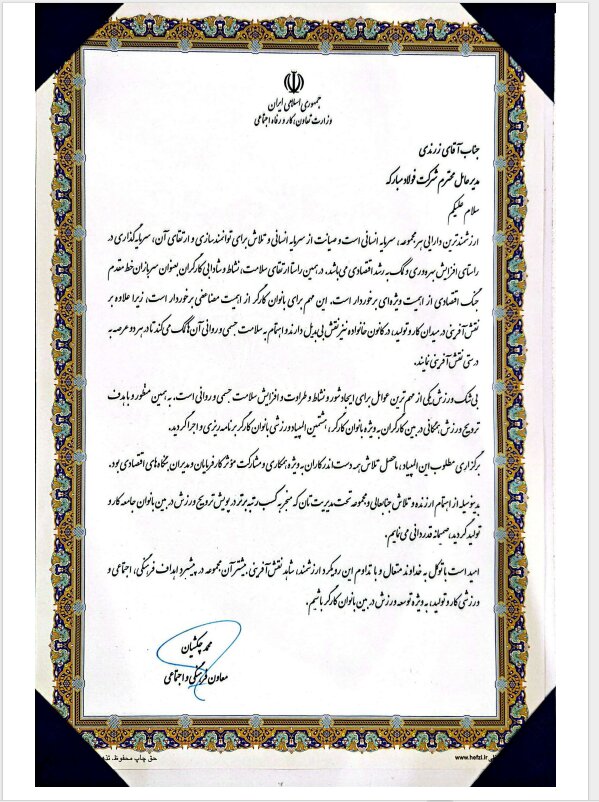 جمهوری اسلامی ایران
وزارت تعاون، کار و رفاه اجتماعی
جناب آقای زرندی
مدیر عامل محترم شرکت فولاد مبارکه
سلام علیکم
ارزشمندترین دارایی هر مجموعه، سرمایه انسانی است و صیانت از سرمایه انسانی و تلاش برای توانمندسازی و ارتقای آن، سرمایه‌گذاری در
راستای افزایش بهره‌وری و کمک به رشد اقتصادی می‌باشد. در همین راستا ارتقای سلامت، نشاط و شادابی کارگران بعنوان سربازان خط مقدم
جنگ اقتصادی از اهمیت ویژه‌ای برخوردار است. این مهم برای بانوان کارگر از اهمیت مضاعفی برخوردار است، زیرا علاوه بر
نقش‌آفرینی در میدان کار و تولید، در کانون خانواده نیز نقش بی‌بدیل دارند و اهتمام به سلامت جسمی و روانی آن‌ها کمک می‌کند تا در هر دو عرصه به
درستی نقش‌آفرینی نمایند.
بی‌شک ورزش یکی از مهم‌ترین عوامل برای ایجاد شور و نشاط و طراوت و افزایش سلامت جسمی و روانی است. به همین منظور و با هدف
ترویج ورزش همگانی در بین کارگران به ویژه بانوان کارگر، هشتمین المپیاد ورزشی بانوان کارگر برنامه‌ریزی و اجرا گردید.
برگزاری مطلوب این المپیاد، ماحصل تلاش همه دست‌اندرکاران به ویژه همکاری و مشارکت مؤثر کارفرمایان و مدیران بنگاه‌های اقتصادی بود.
بدینوسیله از اهتمام ارزنده و تلاش جنابعالی و مجموعه تحت مدیریت‌تان که منجر به کسب رتبه برتر در پویش ترویج ورزش در بین بانوان جامعه کار و
تولید گردید، صمیمانه قدردانی می‌نمایم.
امید است با توکل به خداوند متعال و با تداوم این رویکرد ارزشمند، شاهد نقش‌آفرینی بیشتر آن مجموعه در پیشبرد اهداف فرهنگی، اجتماعی و
ورزشی کار و تولید، به ویژه توسعه ورزش در بین بانوان کارگر باشیم.
محمد چکشیان
معاون فرهنگی و اجتماعی
حق چاپ محفوظ.
www.hefzi.ir